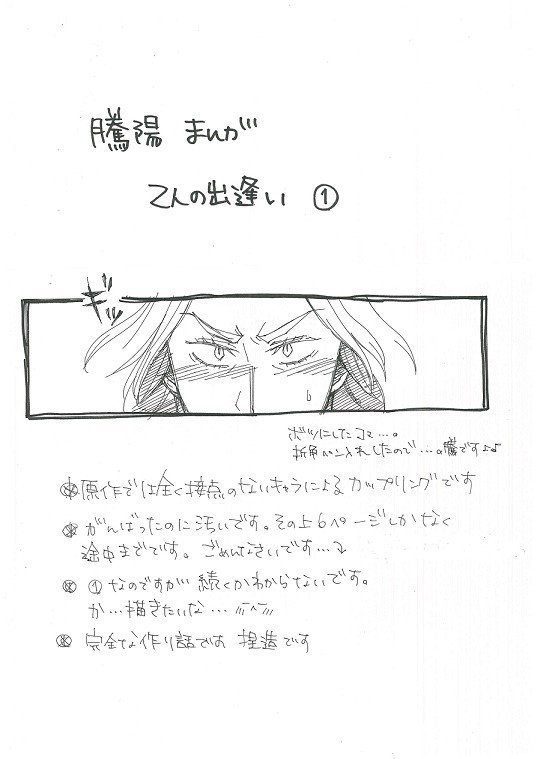 騰陽 まんが
2人の出逢い ①
ギッ
ボツにしたコマ…。
折角ペン入れしたので…。騰です♪♪
※原作では全く接点のないキャラによるカップリングです
※がんばったのに汚いです。その上6ページしかなく
途中までです。ごめんなさいです…
※①なのですが続くかわからないです。
か…描きたいな…
※完全な作り話です 捏造です